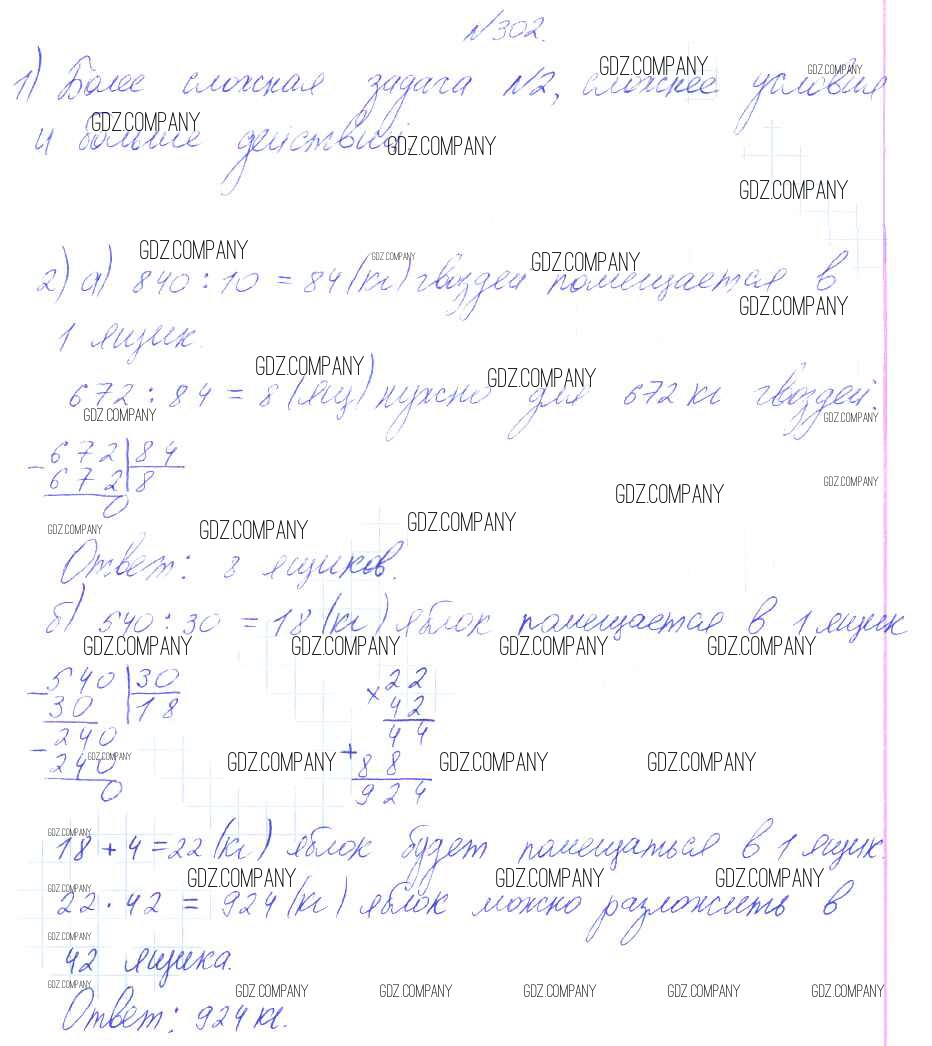 №302.
GDZ.COMPANY GDZ.COMPANY
1) Более сложная задача №2, сложнее условия
GDZ.COMPANY
и больше действий.
GDZ.COMPANY
GDZ.COMPANY
GDZ.COMPANY GDZ.COMPANY GDZ.COMPANY
2) а) 840 : 10 = 84 (кг) гвоздей помещается в
GDZ.COMPANY
1 ящик.
GDZ.COMPANY GDZ.COMPANY
672 : 84 = 8 (ящ) нужно для 672 кг гвоздей.
GDZ.COMPANY GDZ.COMPANY
- 672 | 84
672 | 8
0
GDZ.COMPANY GDZ.COMPANY
GDZ.COMPANY GDZ.COMPANY GDZ.COMPANY
Ответ: 8 ящиков.
б) 540 : 30 = 18 (кг) яблок помещается в 1 ящик
GDZ.COMPANY GDZ.COMPANY GDZ.COMPANY GDZ.COMPANY
- 540 | 30
30 | 18
- 240
240
0
× 22
42
44
+ 88
924
GDZ.COMPANY GDZ.COMPANY GDZ.COMPANY GDZ.COMPANY
GDZ.COMPANY
18 + 4 = 22 (кг) яблок будет помещаться в 1 ящик.
GDZ.COMPANY GDZ.COMPANY GDZ.COMPANY GDZ.COMPANY
22 · 42 = 924 (кг) яблок можно разложить в
GDZ.COMPANY
42 ящика.
GDZ.COMPANY GDZ.COMPANY GDZ.COMPANY GDZ.COMPANY GDZ.COMPANY GDZ.COMPANY
Ответ: 924 кг.